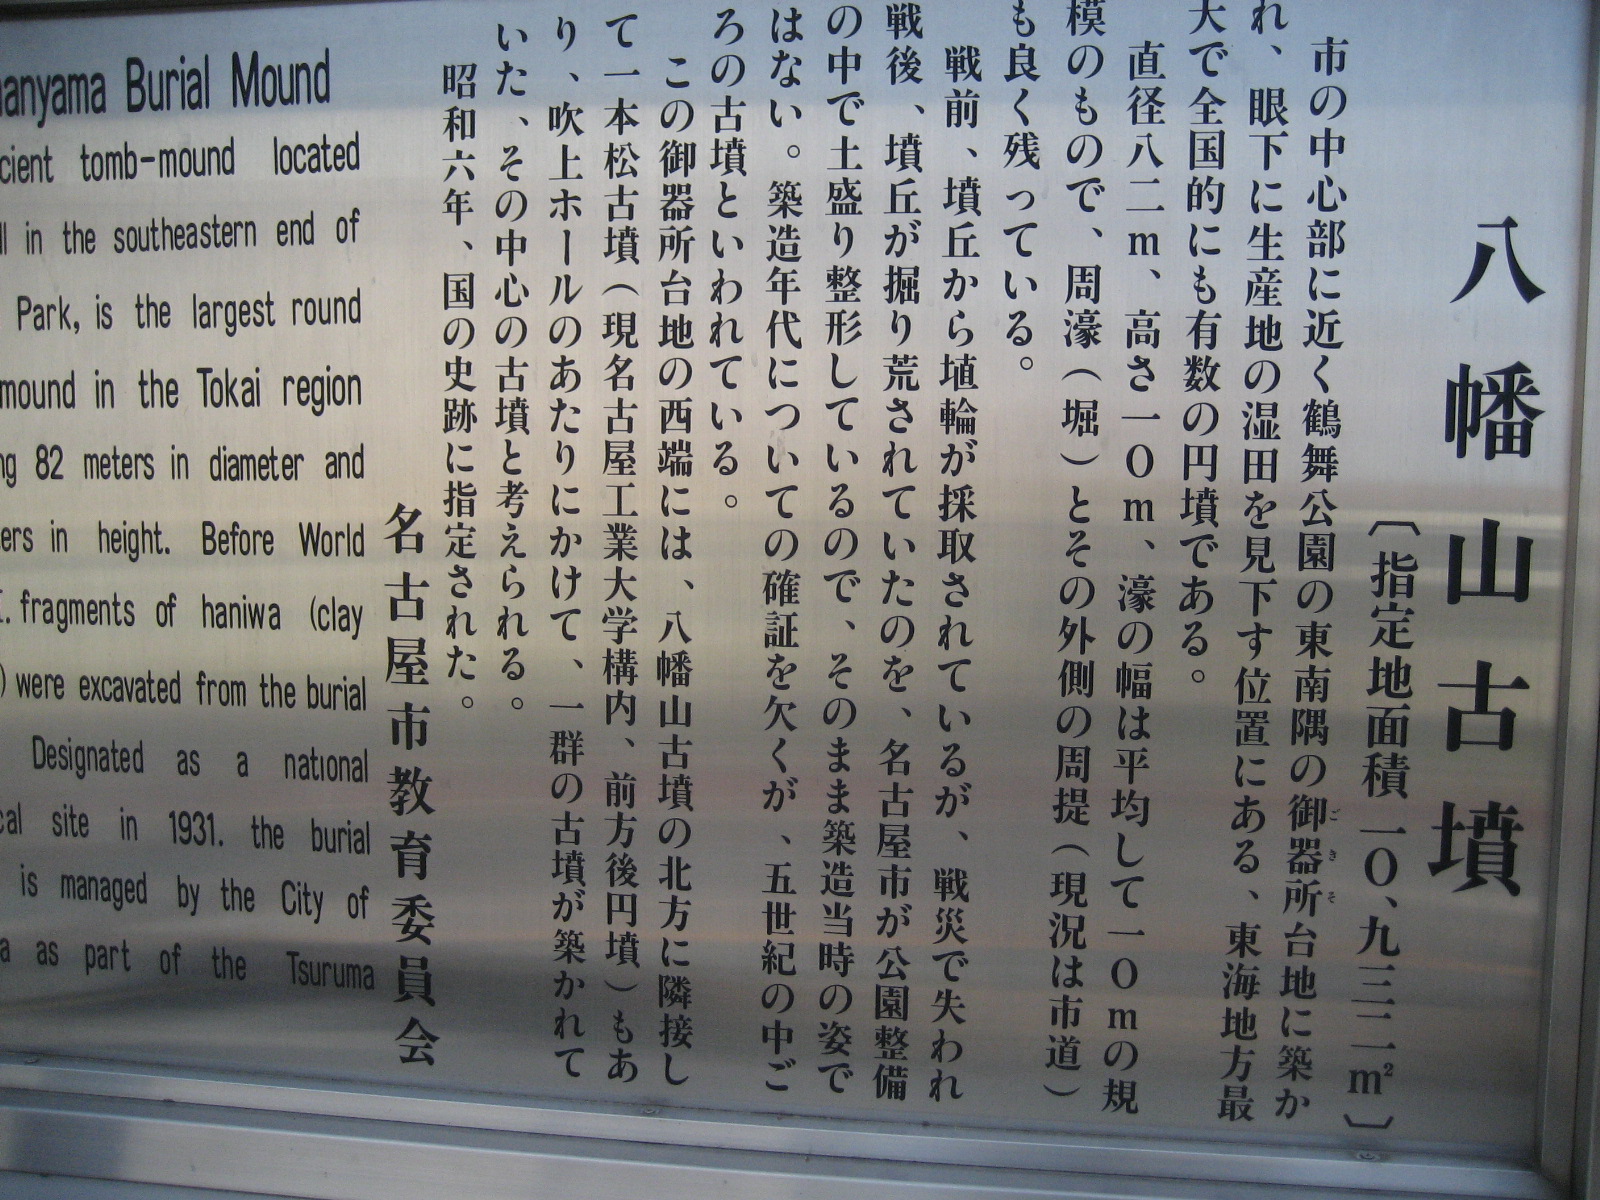 八幡山古墳
〔指定地面積 一〇、九三二m²〕
市の中心部に近く鶴舞公園の東南隅の御器所台地に築か
れ、眼下に生産地の湿田を見下す位置にある、東海地方最
大で全国的にも有数の円墳である。
直径八二m、高さ一〇m、濠の幅は平均して一〇mの規
模のもので、周濠（堀）とその外側の周提（現況は市道）
も良く残っている。
戦前、墳丘から埴輪が採取されているが、戦災で失われ
戦後、墳丘が掘り荒されていたのを、名古屋市が公園整備
の中で土盛り整形しているので、そのまま築造当時の姿で
はない。築造年代についての確証を欠くが、五世紀の中ご
ろの古墳といわれている。
この御器所台地の西端には、八幡山古墳の北方に隣接し
て一本松古墳（現名古屋工業大学構内、前方後円墳）もあ
り、吹上ホールのあたりにかけて、一群の古墳が築かれて
いた、その中心の古墳と考えられる。
昭和六年、国の史跡に指定された。
名古屋市教育委員会
manyama Burial Mound
cient tomb-mound located
ll in the southeastern end of
Park, is the largest round
mound in the Tokai region
ng 82 meters in diameter and
ers in height. Before World
I. fragments of haniwa (clay
) were excavated from the burial
Designated as a national
cal site in 1931. the burial
is managed by the City of
a as part of the Tsuruma